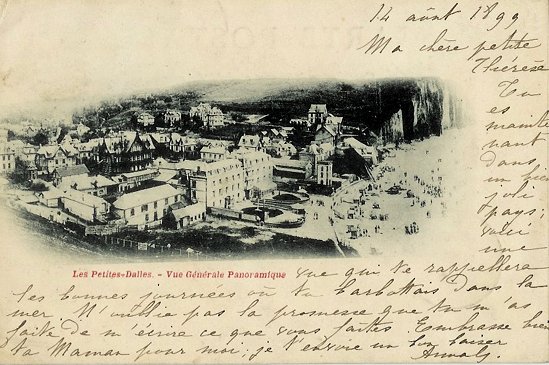 14 août 1899
Ma chère petite
Thérèse
Tu
es
mainte
nant
dans
un
bien
joli
pays;
voici
une
Les Petites-Dalles. - Vue Générale Panoramique
vue qui te rappellera
les bonnes journées où tu barbottais dans la
mer. N'oublie pas la promesse que tu m'as
faite de m'écrire ce que vous faites. Embrasse bien
ta Maman pour moi; je t'envoie un bon baiser